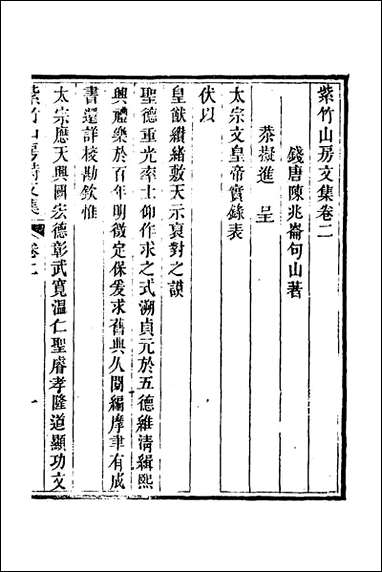 紫竹山房文集卷二
錢唐陳兆崙句山著
恭擬進呈
太宗文皇帝實錄表
伏以
皇猷纘緒敷天示裒對之謨
聖德重光率土仰作求之式溯貞元於五德維清緝熙
興禮樂於百年明徵定保爰求舊典久閟編摩聿有成
書還詳校勘欽惟
太宗應天興國宏德彰武寬溫仁聖睿孝隆道顯功文
紫竹山房詩文集 卷二 一